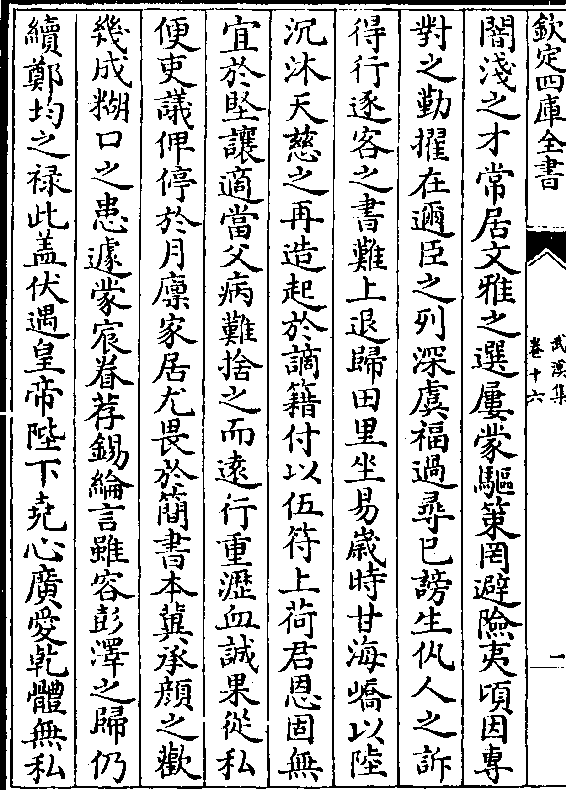 欽定四庫全書
武溪集
卷十六
一
闇淺之才常居文雅之選屢蒙驅策罔避險夷頃因專
對之勤擢在邇臣之列深虞福過尋已謗生仇人之訴
得行逐客之書難上退歸田里坐易歲時甘海嶠以陸
沉沐天慈之再造起於謫籍付以伍符上荷君恩固無
宜於堅讓適當父病難捨之而遠行重瀝血誠果從私
便吏議俾停於月廪家居尤畏於簡書本冀承顔之歡
幾成糊口之患遽蒙宸眷荐錫綸言雖容彭澤之歸仍
續鄭均之禄此盖伏遇皇帝陛下堯心廣愛乾體無私